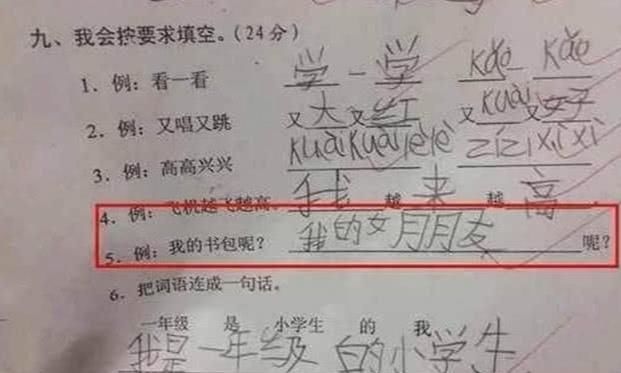 九、我会按要求填空。（24分）
1．例：看一看 学一学 kǎo kǎo
2．例：又唱又跳 又大又红 又kuài又好
3．例：高高兴兴 kuàikuàilèlè zǐzǐxìxì
4．例：飞机越飞越高。我越来越高．
5．例：我的书包呢？ 我的女月月友呢？
6．把词语连成一句话。
一年级 是 小学生 的 我
我是一年级的小学生